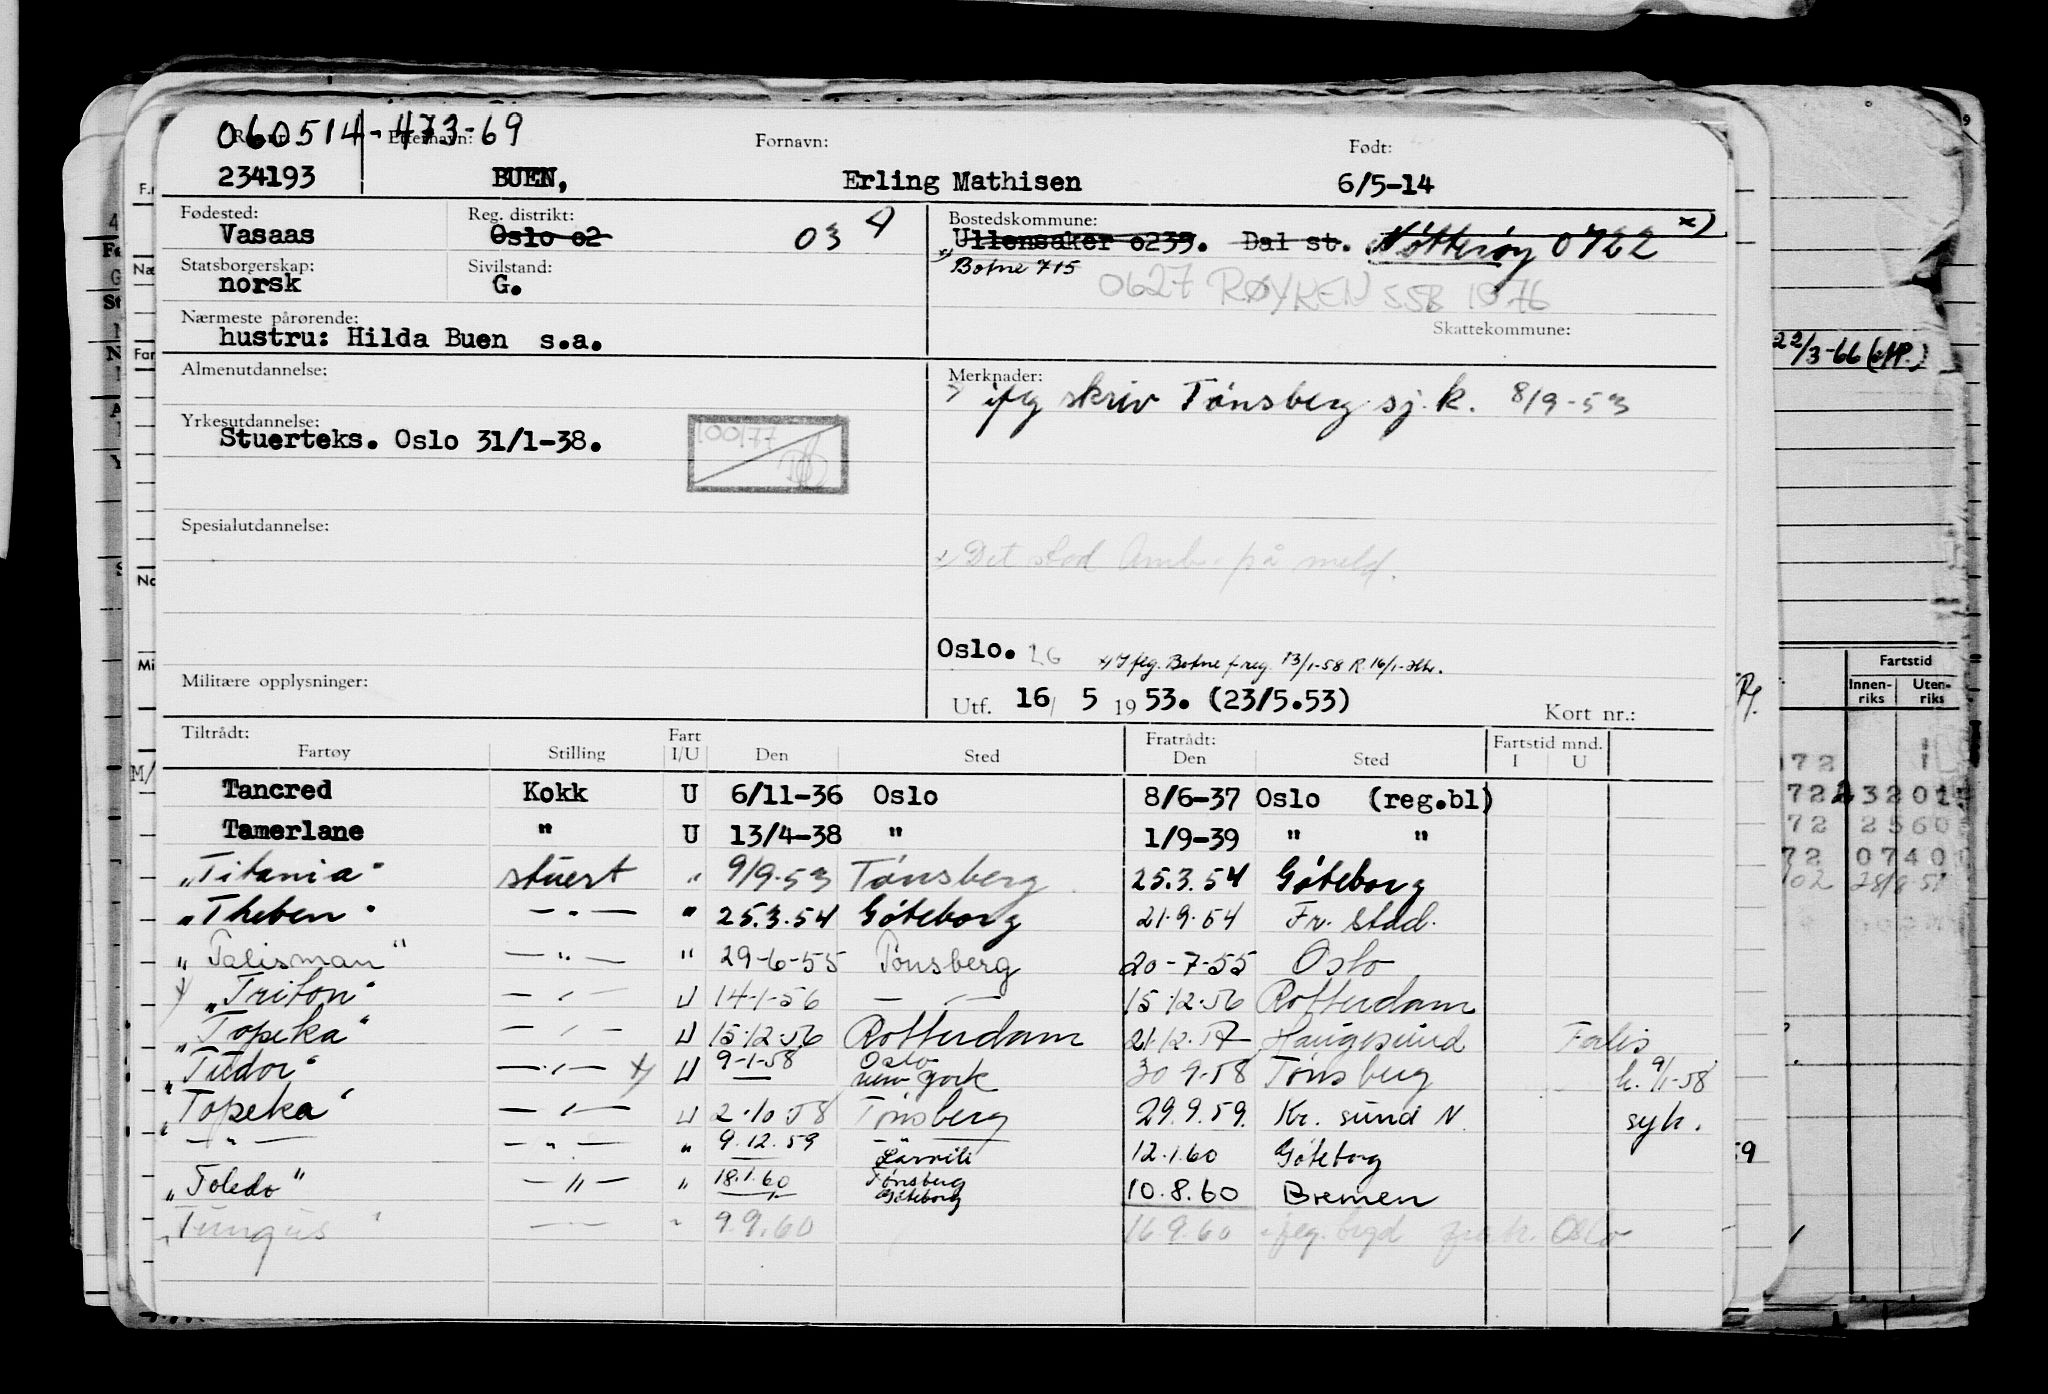 060514-473-69
Reg.nr. Etternavn: Fornavn: Født:
234193 BUEN, Erling Mathisen 6/5-14
Fødested: Reg. distrikt: Bostedskommune:
Vasaas Oslo 02 03 Ullensaker 0233. Dal st. Nøtterøy 0722 x)
Statsborgerskap: Sivilstand: Botne 715
norsk G. 0627 RØYKEN SSB 1976
Nærmeste pårørende: Skattekommune:
hustru: Hilda Buen s.a.
Almenutdannelse: Merknader:
ifg skriv Tønsberg sj.k. 8/9-53
Yrkesutdannelse:
Stuerteks. Oslo 31/1-38. 100/77
Spesialutdannelse:
Det stod på meld.
Oslo. 26 x) Iflg. Botne f.reg. 13/1-58 R. 16/1-
Militære opplysninger:
Utf. 16/ 5 1953. (23/5.53) Kort nr.:
Tiltrådt: Fart Fratrådt: Fartstid mnd.
Fartøy Stilling I/U Den Sted Den Sted I U
Tancred Kokk U 6/11-36 Oslo 8/6-37 Oslo (reg.bl)
Tamerlane " U 13/4-38 " 1/9-39 " "
"Titania" stuert " 9/9-53 Tønsberg 25.3.54 Göteborg
"Theben" — " — " 25.3.54 Göteborg 21.9.54 Fr. stad.
"Talisman" — " — " 29-6-55 Tønsberg 20-7-55 Oslo
x "Triton" — " — U 14-1-56 — " — 15.12.56 Rotterdam
"Topeka" — " — U 15.12.56 Rotterdam 21.12.57 Haugesund Ferie
"Tudor" — " — x) U 9-1-58 Oslo New York 30 9.58 Tønsberg k. 9/1-58
"Topeka" — " — U 2.10.58 Tønsberg 29.9.59. Kr. sund N. syk.
— " — — " — " 9.12.59 Larvik 12.1.60 Göteborg
"Toledo" — " — " 18.1.60 Tønsberg Göteborg 10.8.60 Bremen
"Tungus" — " — " 9.9.60 16.9.60 Oslo
22/3-66
Fartstid
Innen-riks Uten-riks